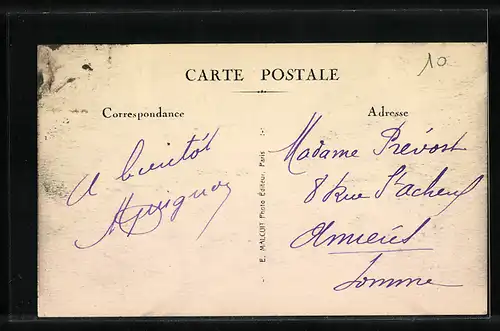 10
CARTE POSTALE
Correspondance
Adresse
A bientôt
E. MALCUIT Photo Éditeur, Paris
Madame Prévost
8 Rue St Acheul
Amiens
Somme